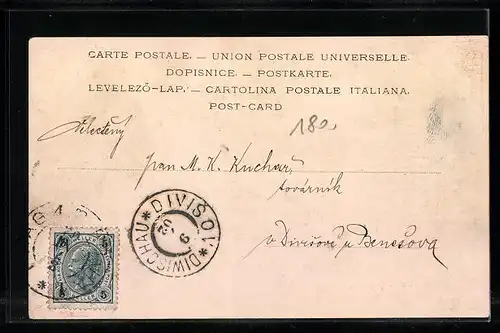 CARTE POSTALE. — UNION POSTALE UNIVERSELLE.
DOPISNICE. — POSTKARTE.
LEVELEZŐ-LAP. — CARTOLINA POSTALE ITALIANA.
POST-CARD
180.
Velectěný
pan M. K. Kuchař,
továrník
v Divišově u Benešova
DIVIŠOV * DIWISCHAU *
9
02
5